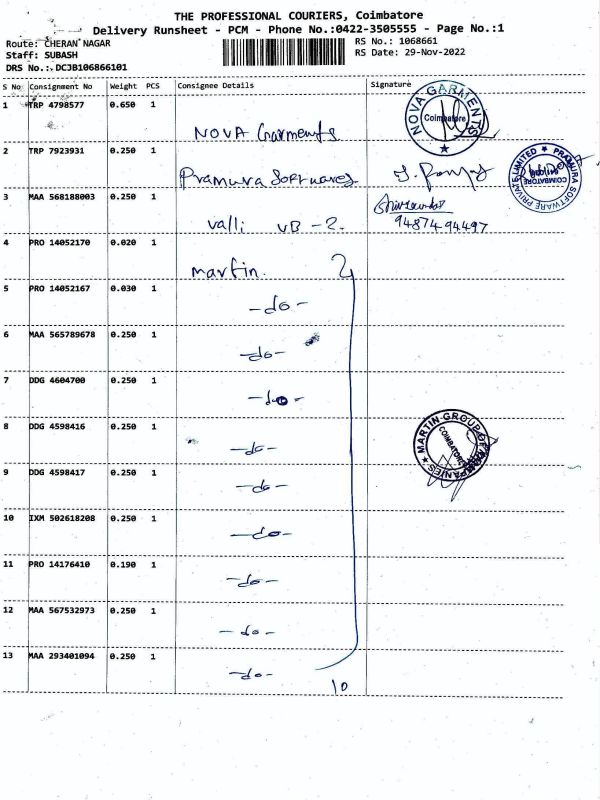 THE PROFESSIONAL COURIERS, Coimbatore
Delivery Runsheet - PCM - Phone No.:0422-3505555 - Page No.:1
Route: CHERAN NAGAR
RS No.: 1068661
Staff: SUBASH
RS Date: 29-Nov-2022
DRS No.:- DCJB106866101
S No Consignment No Weight PCS Consignee Details Signature
1 TRP 4798577 0.650 1
NOVA Garments
NOVA GARMENTS Coimbatore
2 TRP 7923931 0.250 1
Pramura Softwares
PRAMURA SOFTWARE PRIVATE LIMITED COIMBATORE
3 MAA 568188003 0.250 1
Valli VB - 2.
94874-94497
4 PRO 14052170 0.020 1
martin.
5 PRO 14052167 0.030 1
-do-
6 MAA 565789678 0.250 1
-do-
7 DDG 4604700 0.250 1
-do-
8 DDG 4598416 0.250 1
-do-
MARTIN GROUP OF COMPANIES COIMBATORE
9 DDG 4598417 0.250 1
-do-
10 IXM 502618208 0.250 1
-do-
11 PRO 14176410 0.190 1
-do-
12 MAA 567532973 0.250 1
-do-
13 MAA 293401094 0.250 1
-do-
10